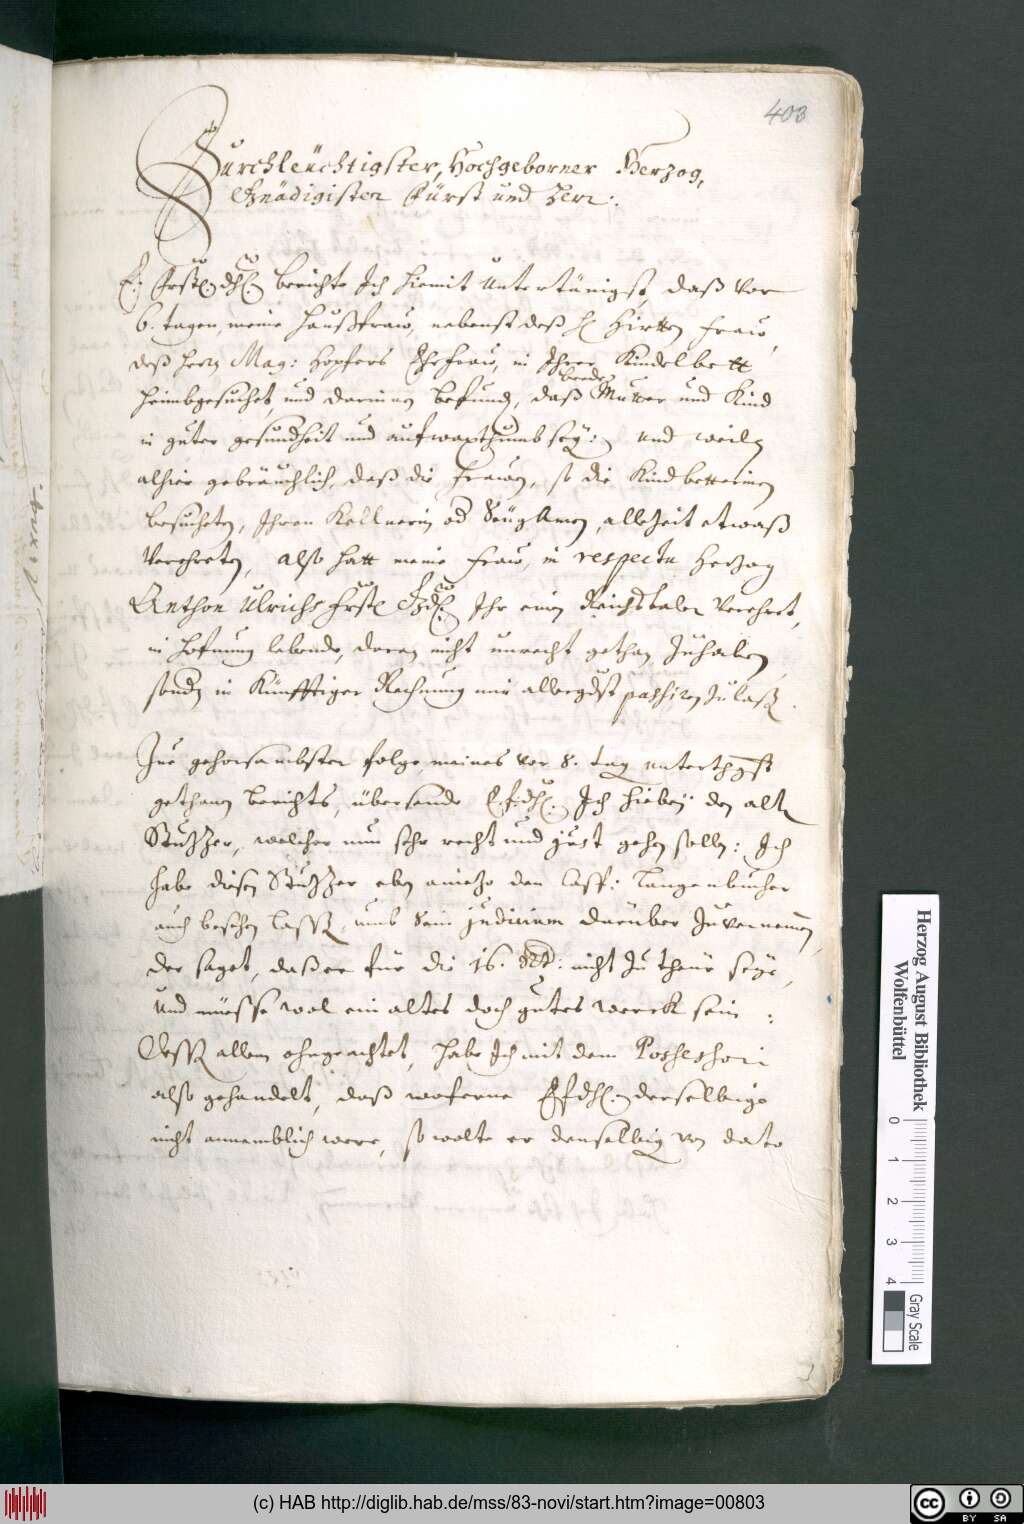 403
Durchleüchtigster, Hochgeborner Herzog,
Gnädigister Fürst und Herr:
E: Frstl: dhl: berichte Ich hiemit Untertänigst, daß vor
6. tagen, meine Haußfraw, nebenst deß H Hirtten fraw,
deß Herrn Mag: Hopfers Ehefraw, in Ihrer Kindelbett
heimbgesuchet, und darinnen befunden, daß beede Mutter und Kind
in guter gesundheit und aufwaxthumb seyen: und weiln
alhier gebräuchlich, daß die frawen, so die Kindbetterinen
besuchten, Ihren Kellnerin od Säügamen, allezeit etwaß
verehreten, also hatt meine fraw, in respectu Herzog
Anthon Ulrichs Frstl Gdhl: Ihr einen Reichsthaler verehret,
in hofnung lebende, daran nicht unrecht gethan zuhaben,
sondern in Künfftiger Rechnung mir allergdst passiren zulaßen.
Zue gehorsambster folge, meines vor 8. tag unterthgst
gethanen berichts, übersende E. f. dhl: Ich hiebey den alten
Stutzer, welcher nun sehr recht und just gehen solle: Ich
habe diesen Stutzer eben anietzo den Cass: Langenbucher
auch besehen lassen, umb sein judicium darüber zuvernemen,
der saget, daß er für die 16. Rtl: nicht zu theür seye,
und müesse wol ein altes doch gutes werck sein:
Dessen allem ohngeachtet, habe Ich mit dem Possessori
also gehandelt, daß woferne E f dhl: derselbige
nicht annemblich were, so wolte er denselbigen von dato
Herzog August Bibliothek
Wolfenbüttel
0 1 2 3 4
Gray Scale
(c) HAB http://diglib.hab.de/mss/83-novi/start.htm?image=00803
cc BY SA